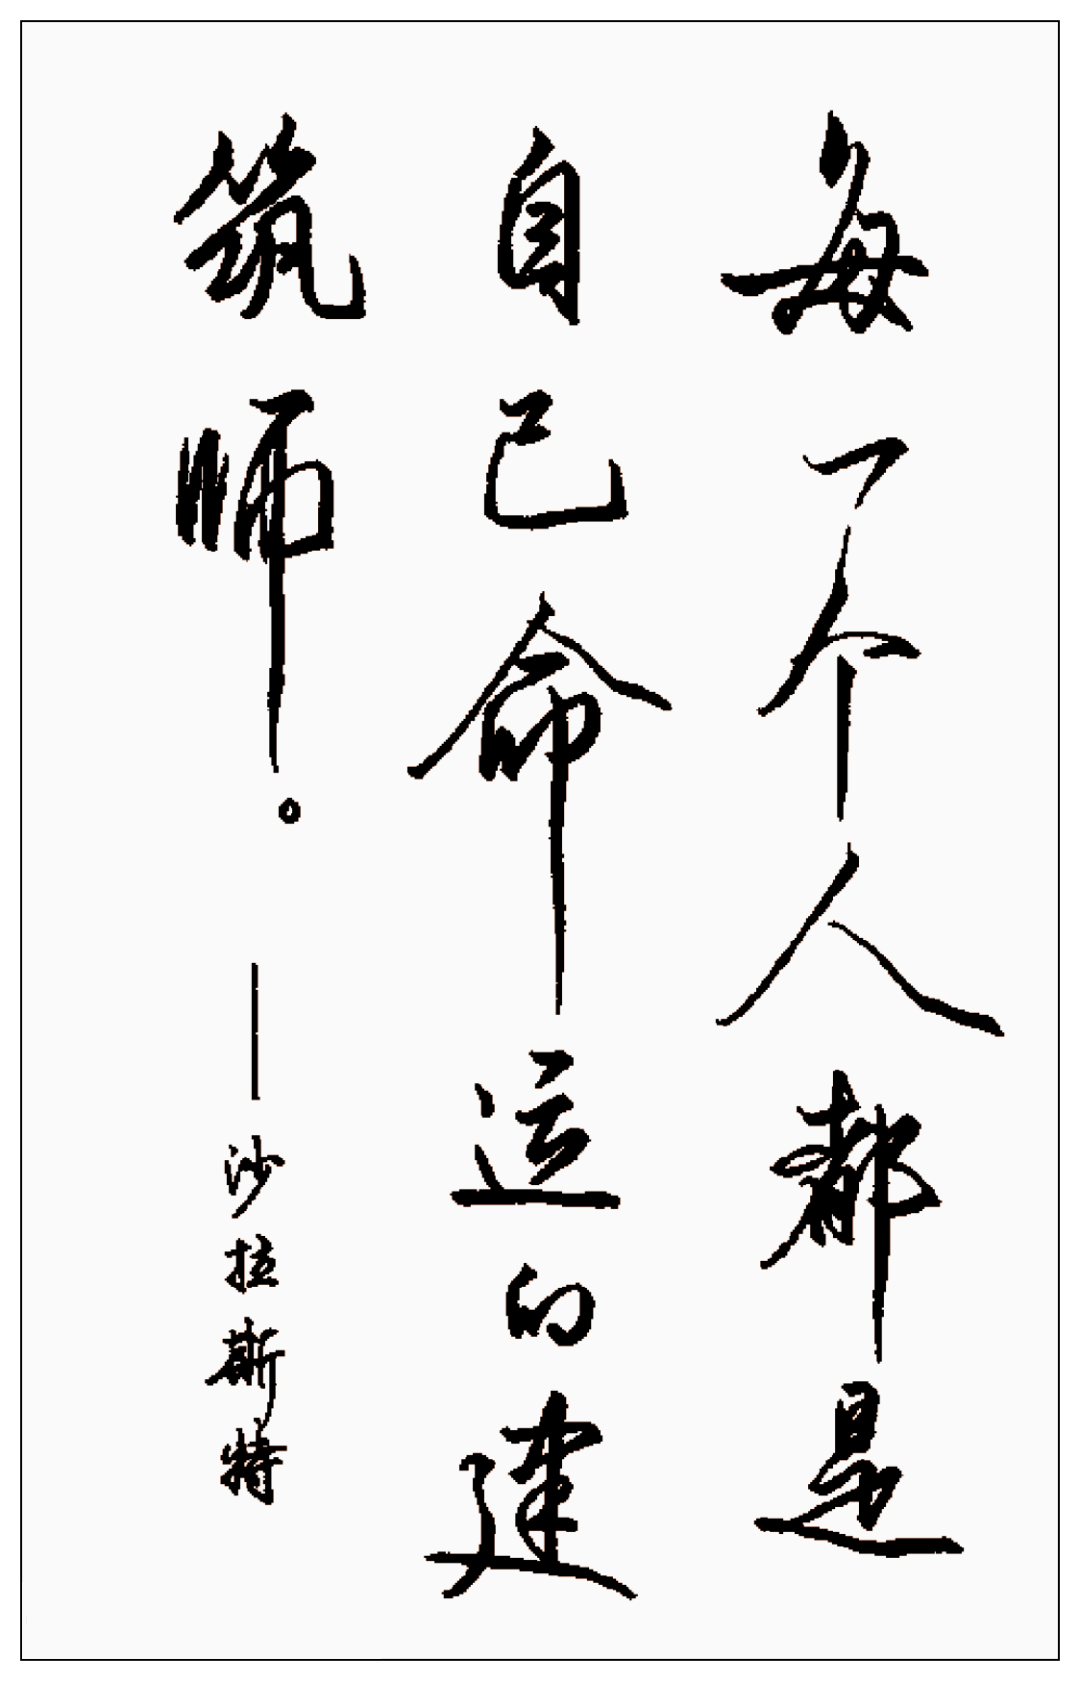 每一个人都是
自己命运的建
筑师。
——沙拉斯特